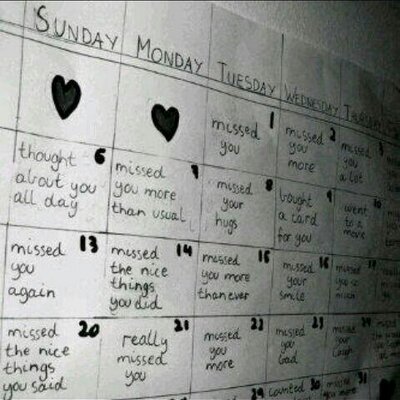 SUNDAY MONDAY TUESDAY WEDNESDAY
1 missed you
2 missed you more
missed you a lot
6 thought about you all day
missed you more than usual
8 missed your hugs
9 bought a card for you
went to a movie
13 missed you again
14 missed the nice things you did
15 missed you more than ever
16 missed your smile
missed you so much
20 missed the nice things you said
21 really missed you
22 missed you more
23 missed you bad
missed your laugh
29 counted 30 missed 31